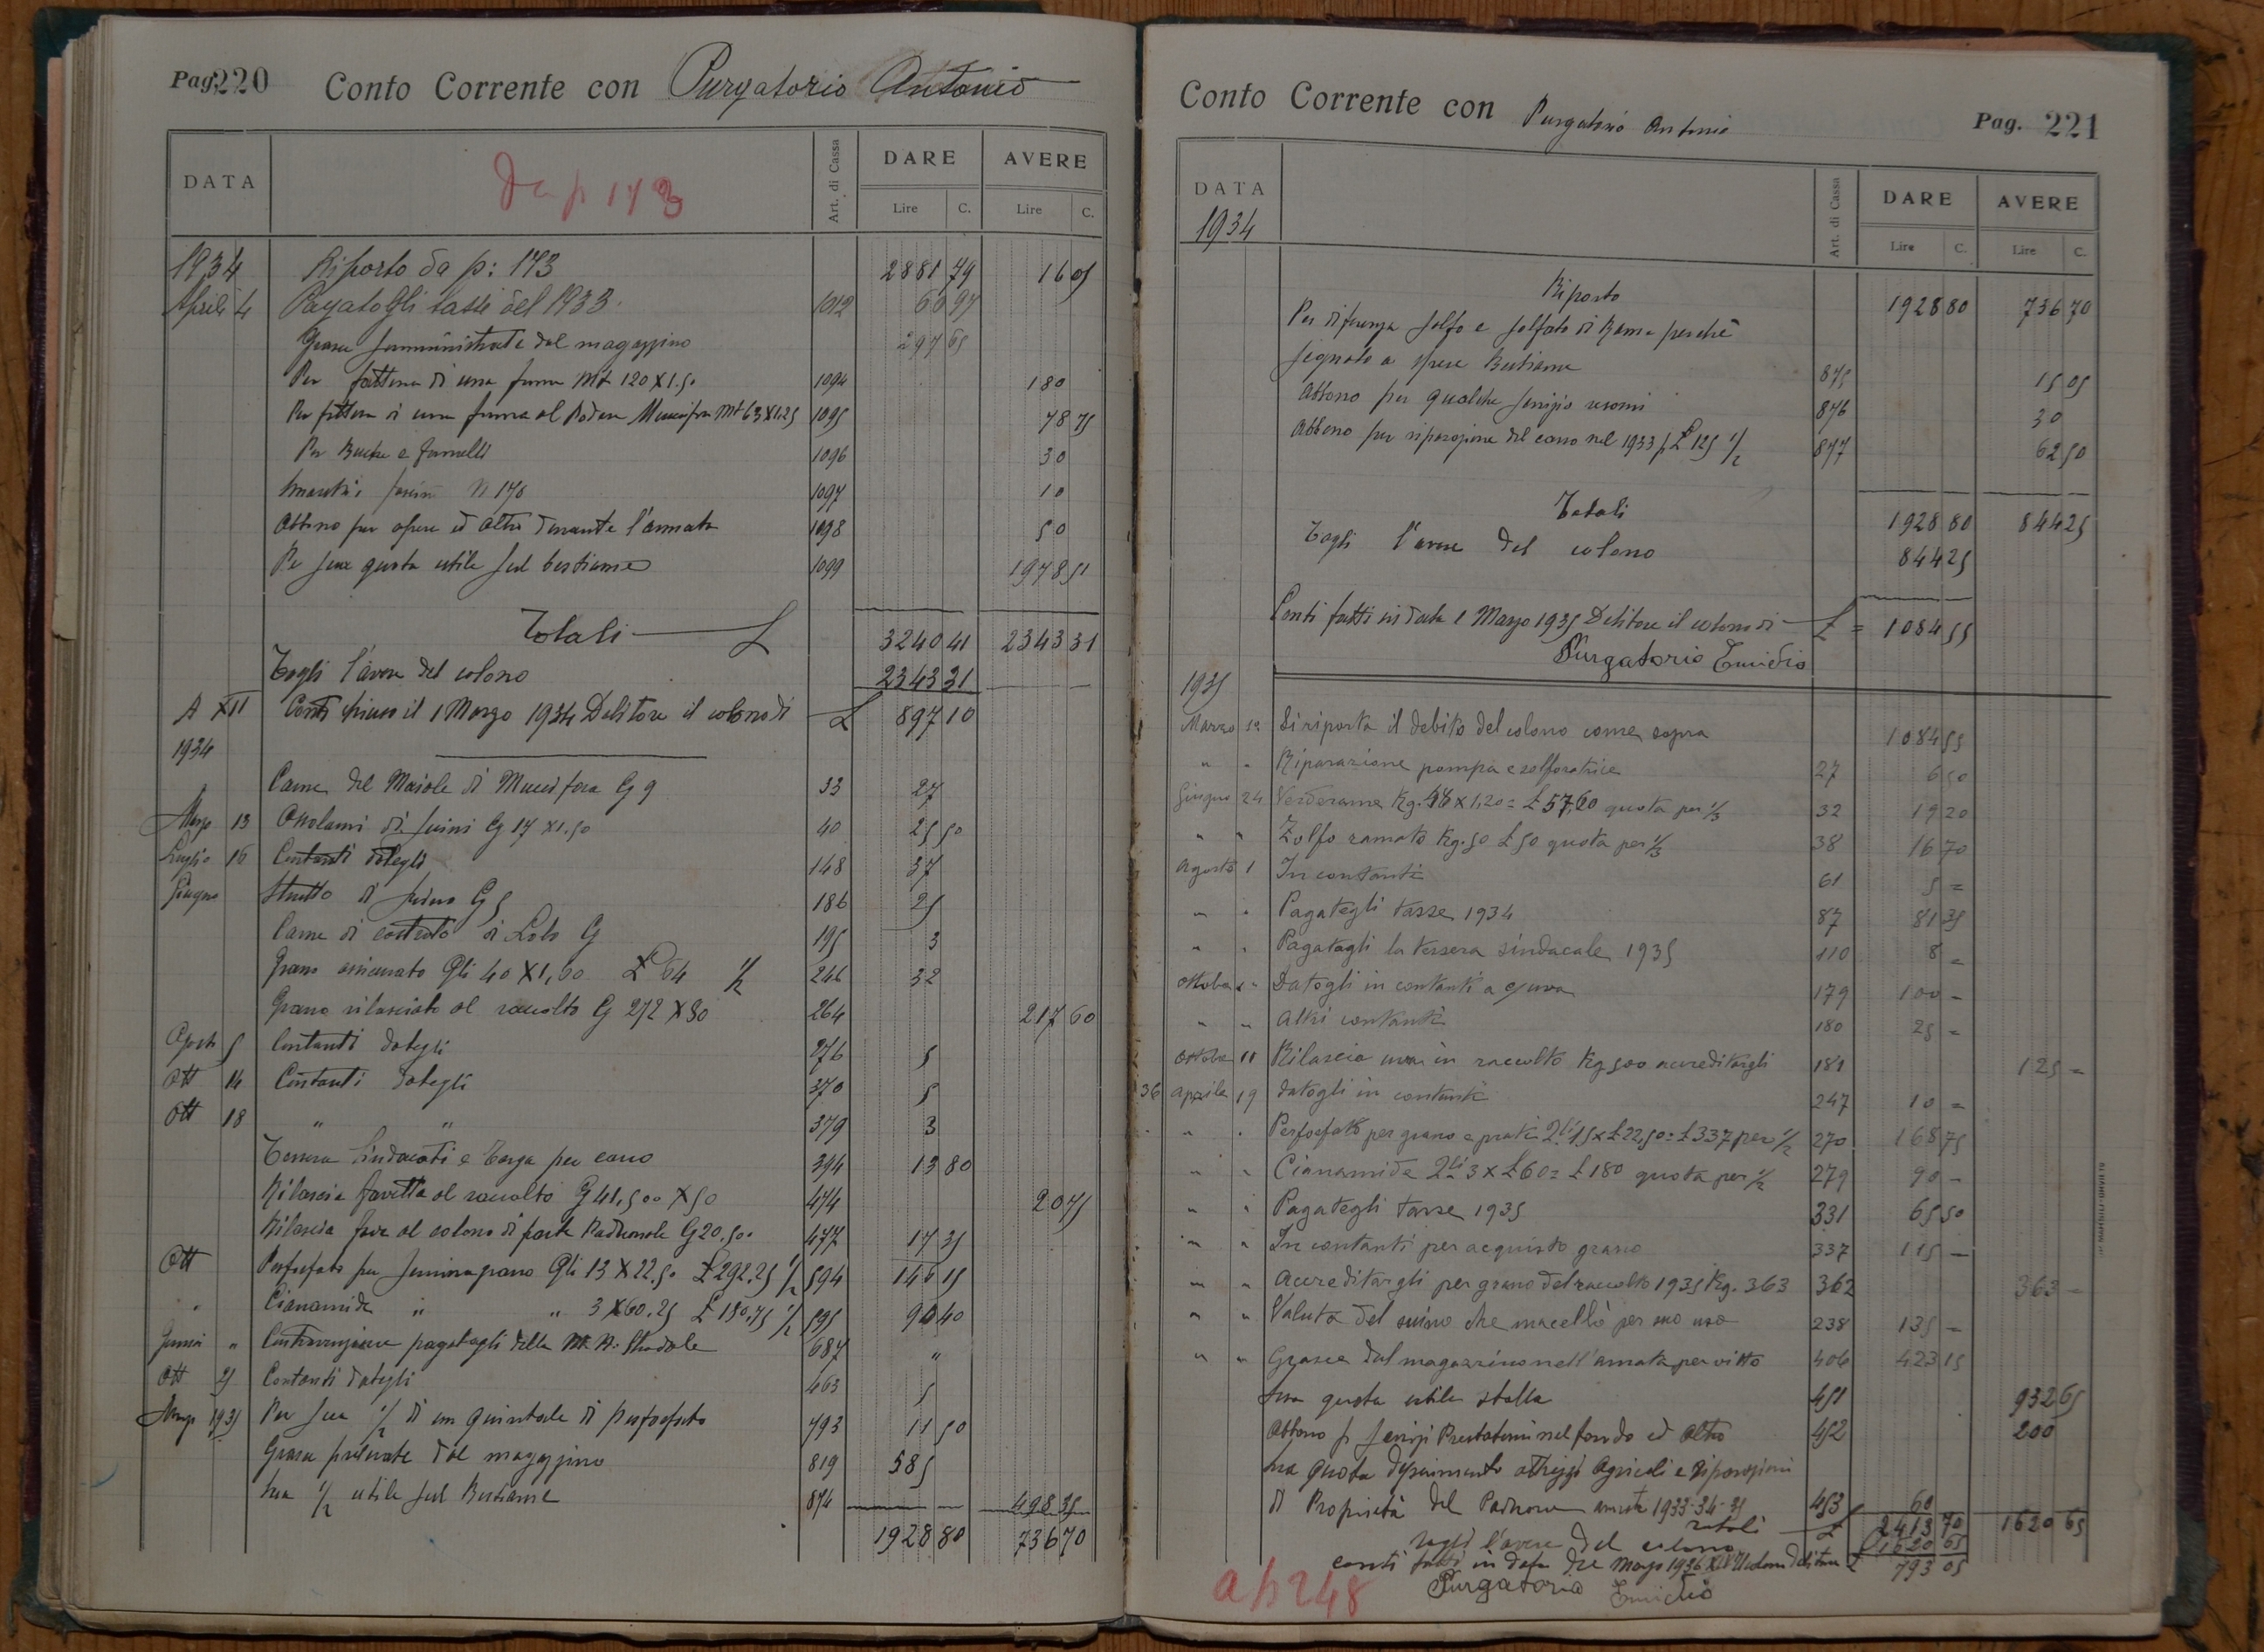 Pag. 220 Conto Corrente con Purgatorio Antonio
DATA Art. di Cassa DARE AVERE
Da p 173
Lire C. Lire C.
1934 Riporto da p: 173 2881 79 16 05
Aprile 4 Pagatogli tasse del 1933. 1012 60 97
somministrate dal magazzino 297 65
Per fattura di una Mt 120 X 1.50 1094 180
Per fattura di una al Podere Mt 63 X 1.25 1095 78 75
Per Buche e 1096 30
N 170 1097 10
Abbono per opere ed altro durante l'annata 1098 50
Per sua quota utile sul bestiame 1099 1978 51
Totali £ 3240 41 2343 31
Togli l'avere del colono 2343 31
A XII Conti chiusi il 1 Marzo 1934 Debitore il colono di £ 897 10
1934
Carne del Maiale di G 9 33 27
Marzo 13 di suini G 17 X 1.50 40 25 50
Luglio 16 Contanti datigli 148 37
Giugno Strutto di suino G 5 186 25
Carne di G 195 3
Grano Qli 40 X 1,60 £ 64 1/2 246 32
Grano rilasciato al raccolto G 272 X 80 264 217 60
Agosto 5 Contanti datigli 276 5
Ott 14 Contanti datigli 370 5
Ott 18 " " 379 3
Tessera Sindacati e Targa per carro 394 13 80
Rilascia favetta al raccolto G 41,500 X 50 474 20 75
Rilascia fave al colono di parte Padronale G 20.500 477 17 35
Ott Perfosfato per semina grano Qli 13 X 22.50 £ 292.25 1/2 594 146 15
" Cianamide " " 3 X 60.25 £ 180.75 1/2 595 90 40
" Contravvenzione pagatagli della Stradale 687 "
Ott 25 Contanti datigli 463 5
Marzo 1935 Per sua 1/2 di un quintale di perfosfato 793 11 50
prelevate dal magazzino 819 585
Sua 1/2 utile sul Bestiame 874 498 35
1928 80 736 70
Conto Corrente con Purgatorio Antonio Pag. 221
DATA Art. di Cassa DARE AVERE
1934 Lire C. Lire C.
Riporto 1928 80 736 70
Per solfo e solfato di Rame perchè
segnato a spese Bestiame 875 15 05
Abbono per qualche servizio 876 30
Abbono per riparazione del carro nel 1933 p £ 125 1/2 877 62 50
Totali 1928 80 844 25
Togli l'avere del colono 844 25
Conti fatti in data 1 Marzo 1935 Debitore il colono di £ = 1084 55
Purgatorio Emidio
1935
Marzo 1º Si riporta il debito del colono come sopra 1084 55
" " Riparazione pompa e solforatrice 27 6 50
Giugno 24 Verderame Kg. 48 x 1,20 = £ 57,60 quota per 1/3 32 19 20
" " Zolfo ramato Kg. 50 £ 50 quota per 1/3 38 16 70
Agosto 1 In contanti 61 5 =
" " Pagategli tasse 1934 87 81 35
" " Pagatagli la tessera sindacale 1935 110 8 =
Ottobre Datogli in contanti a 179 100 -
" " Altri contanti 180 25 =
Ottobre 11 Rilascia uva in raccolto Kg 500 accreditargli 181 125 =
36 Aprile 19 datogli in contanti 247 10 =
" " Perfosfato per grano e prati 2li 15 x £ 22,50 = £ 337 per 1/2 270 168 75
" " Cianamide 2li 3 x £ 60 = £ 180 quota per 1/2 279 90 -
" " Pagategli tasse 1935 331 65 50
" " In contanti per acquisto grano 337 115 -
" " Accreditargli per grano del raccolto 1935 Kg. 363 362 363 -
" " Valuta del suino che macellò per suo uso 238 135 -
" " Grasce dal magazzino nell'annata per vitto 406 423 15
Sua quota utile stalla 451 932 65
Abbono p servizi Prestatimi nel fondo ed altro 452 200
Sua quota deperimento attrezzi agricoli e riparazioni
di Proprietà del Padrone 1933-34-35 453 60
Totali £ 2413 70 1620 65
Togli l'avere del colono 1620 65
Conti fatti in data Marzo 1936 XIV Il colono debitore £ 793 05
a p 248
Purgatorio Emidio